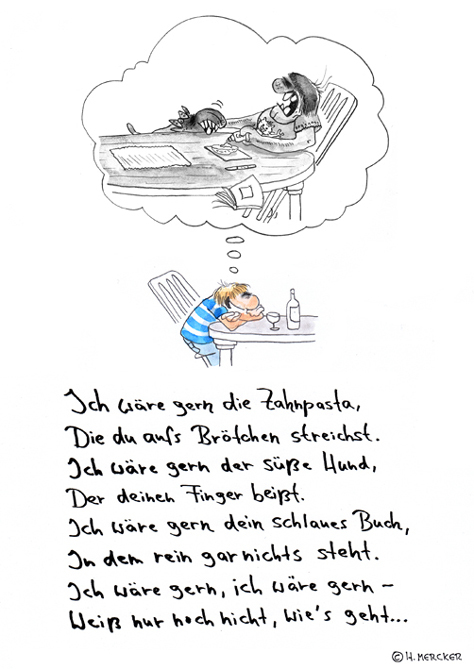 Ich wäre gern die Zahnpasta,
Die du aufs Brötchen streichst.
Ich wäre gern der süße Hund,
Der deinen Finger beißt.
Ich wäre gern dein schlaues Buch,
In dem rein garnichts steht.
Ich wäre gern, ich wäre gern –
Weiß nur noch nicht, wie's geht...
© H. MERCKER